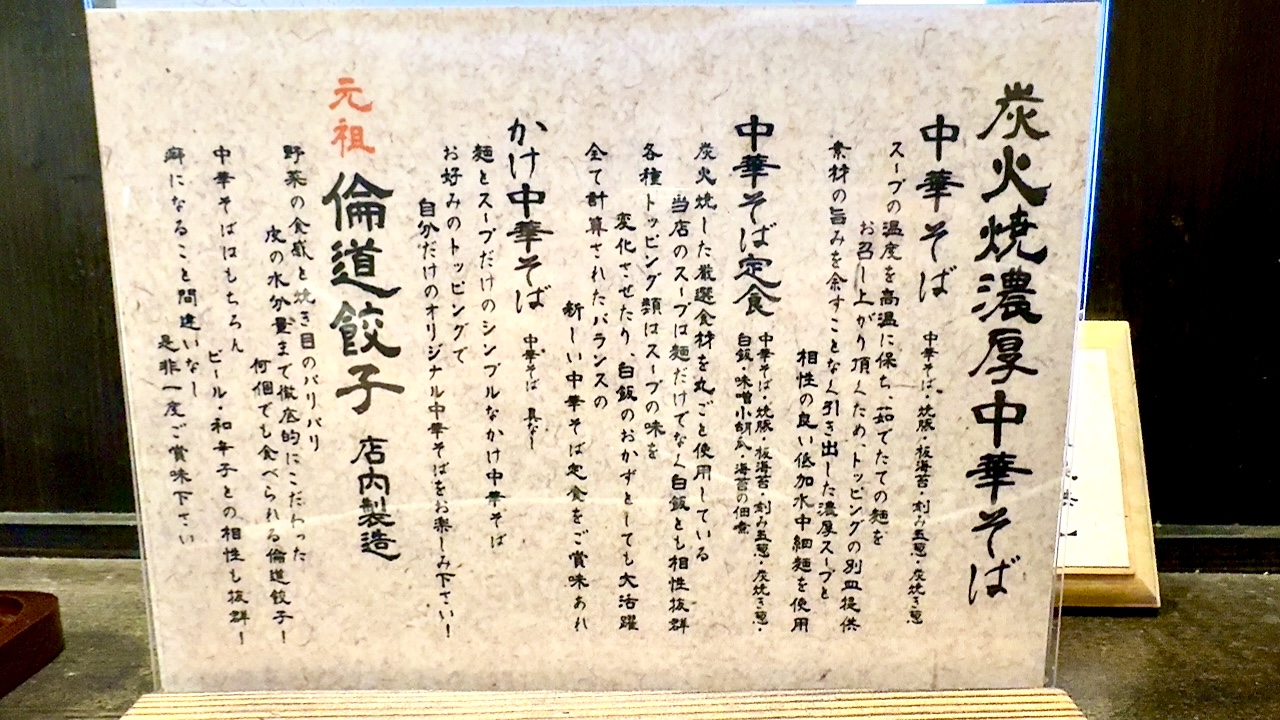 炭火焼濃厚中華そば
中華そば 中華そば・焼豚・板海苔・刻み玉葱・炭焼き葱
スープの温度を高温に保ち、茹でたての麺を
お召し上がり頂くため、トッピングの別皿提供
素材の旨みを余すことなく引き出した濃厚スープと
相性の良い低加水中細麺を使用
中華そば定食 中華そば・焼豚・板海苔・刻み玉葱・炭焼き葱・
白飯・味噌小胡瓜・海苔の佃煮
炭火焼した厳選食材を丸ごと使用している
当店のスープは麺だけでなく白飯とも相性抜群
各種トッピング類はスープの味を
変化させたり、白飯のおかずとしても大活躍
全て計算されたバランスの
新しい中華そば定食をご賞味あれ
かけ中華そば 中華そば 具なし
麺とスープだけのシンプルなかけ中華そば
お好みのトッピングで
自分だけのオリジナル中華そばをお楽しみ下さい!
元祖 倫道餃子 店内製造
野菜の食感と焼き目のパリパリ
皮の水分量まで徹底的にこだわった
何個でも食べられる倫道餃子!
中華そばはもちろん
ビール・和辛子との相性も抜群!
癖になること間違いなし
是非一度ご賞味下さい